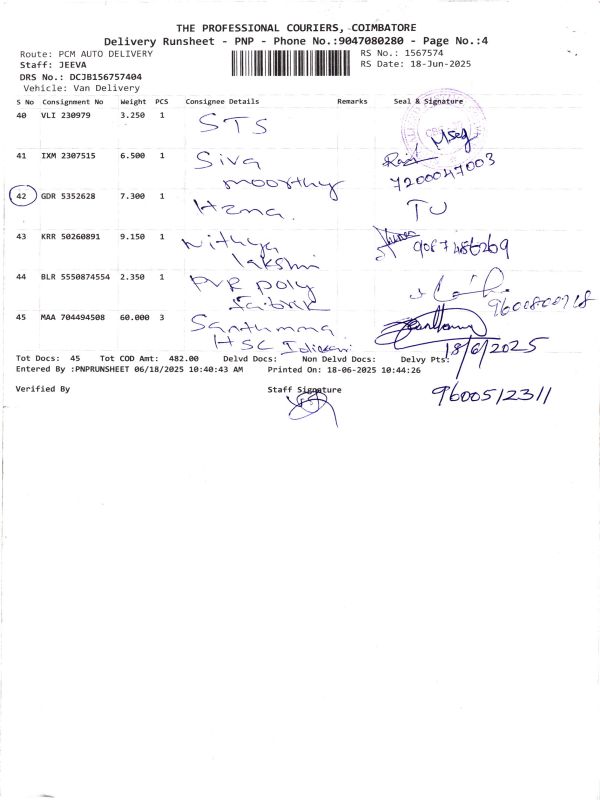 THE PROFESSIONAL COURIERS, COIMBATORE
Delivery Runsheet - PNP - Phone No.:9047080280 - Page No.:4
Route: PCM AUTO DELIVERY RS No.: 1567574
Staff: JEEVA RS Date: 18-Jun-2025
DRS No.: DCJB156757404
Vehicle: Van Delivery
S No Consignment No Weight PCS Consignee Details Remarks Seal & Signature
40 VLI 230979 3.250 1 STS
41 IXM 2307515 6.500 1 Siva moorthy 7200047003
42 GDR 5352628 7.300 1 Hema.
43 KRR 50260891 9.150 1 Nithya lakshmi
44 BLR 5550874554 2.350 1 PVR poly fabrik
45 MAA 704494508 60.000 3 HSC
18/6/2025
Tot Docs: 45 Tot COD Amt: 482.00 Delvd Docs: Non Delvd Docs: Delvy Pts:
Entered By :PNPRUNSHEET 06/18/2025 10:40:43 AM Printed On: 18-06-2025 10:44:26
Verified By Staff Signature
9600512311